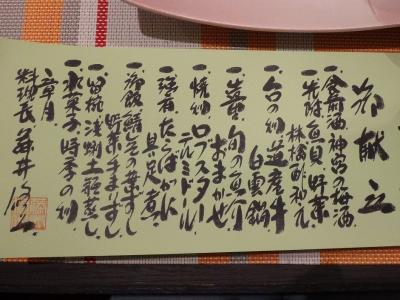 御献立
一、食前酒 神宮の梅酒
一、先附 真貝 野菜
林檎酢 初元
一、台の物 道産牛
白雲鍋
一、造り 旬の魚介
おまかせ
一、焼物 ロブスター
テルミドール
一、強肴 たらばかに
具足煮
一、御飯 鯖 笹の葉すし
野菜手まりすし
一、留椀 浅利土瓶蒸し
一、水菓子 時季の物
料理長 藤井